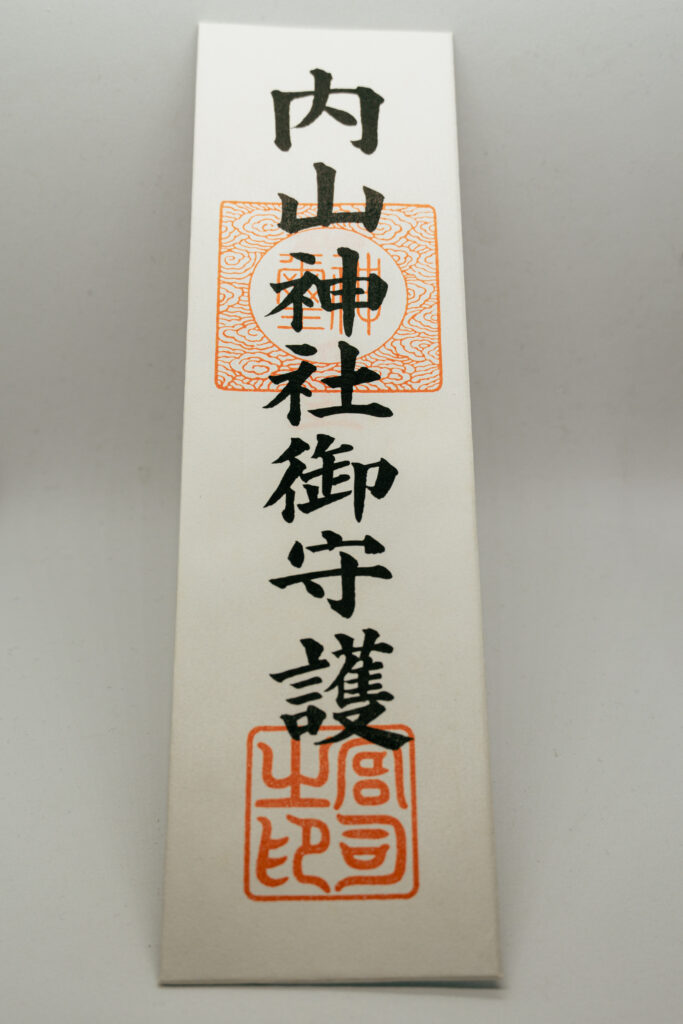 内山神社御守護
神璽
宮司之印